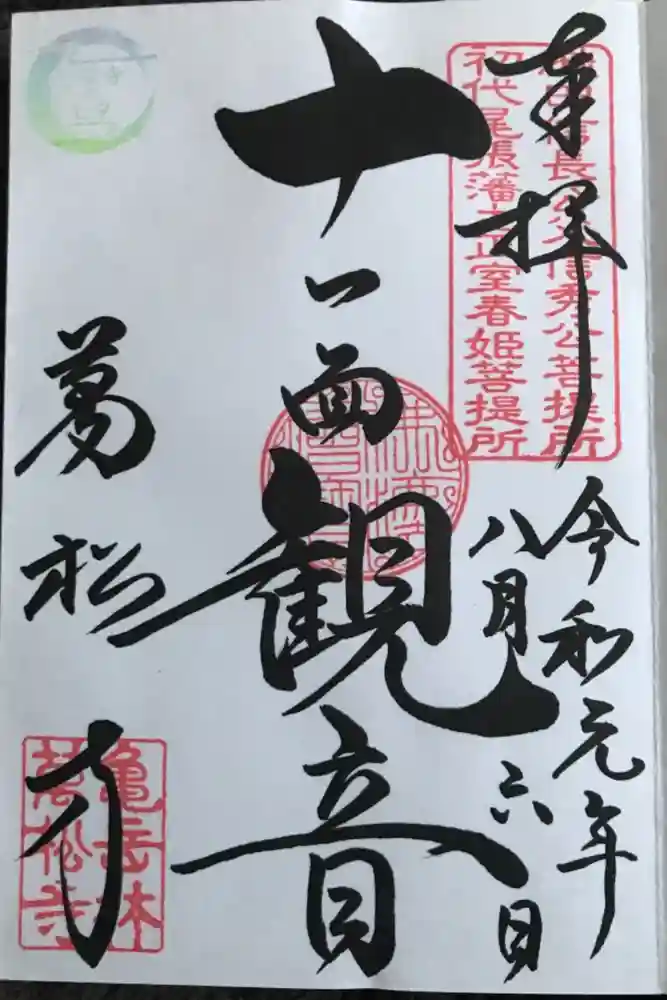 奉拝
令和元年
八月六日
織田信長公父信秀公菩提所
初代尾張藩主正室春姫菩提所
十一面観音
萬松寺
亀岳林
萬松寺